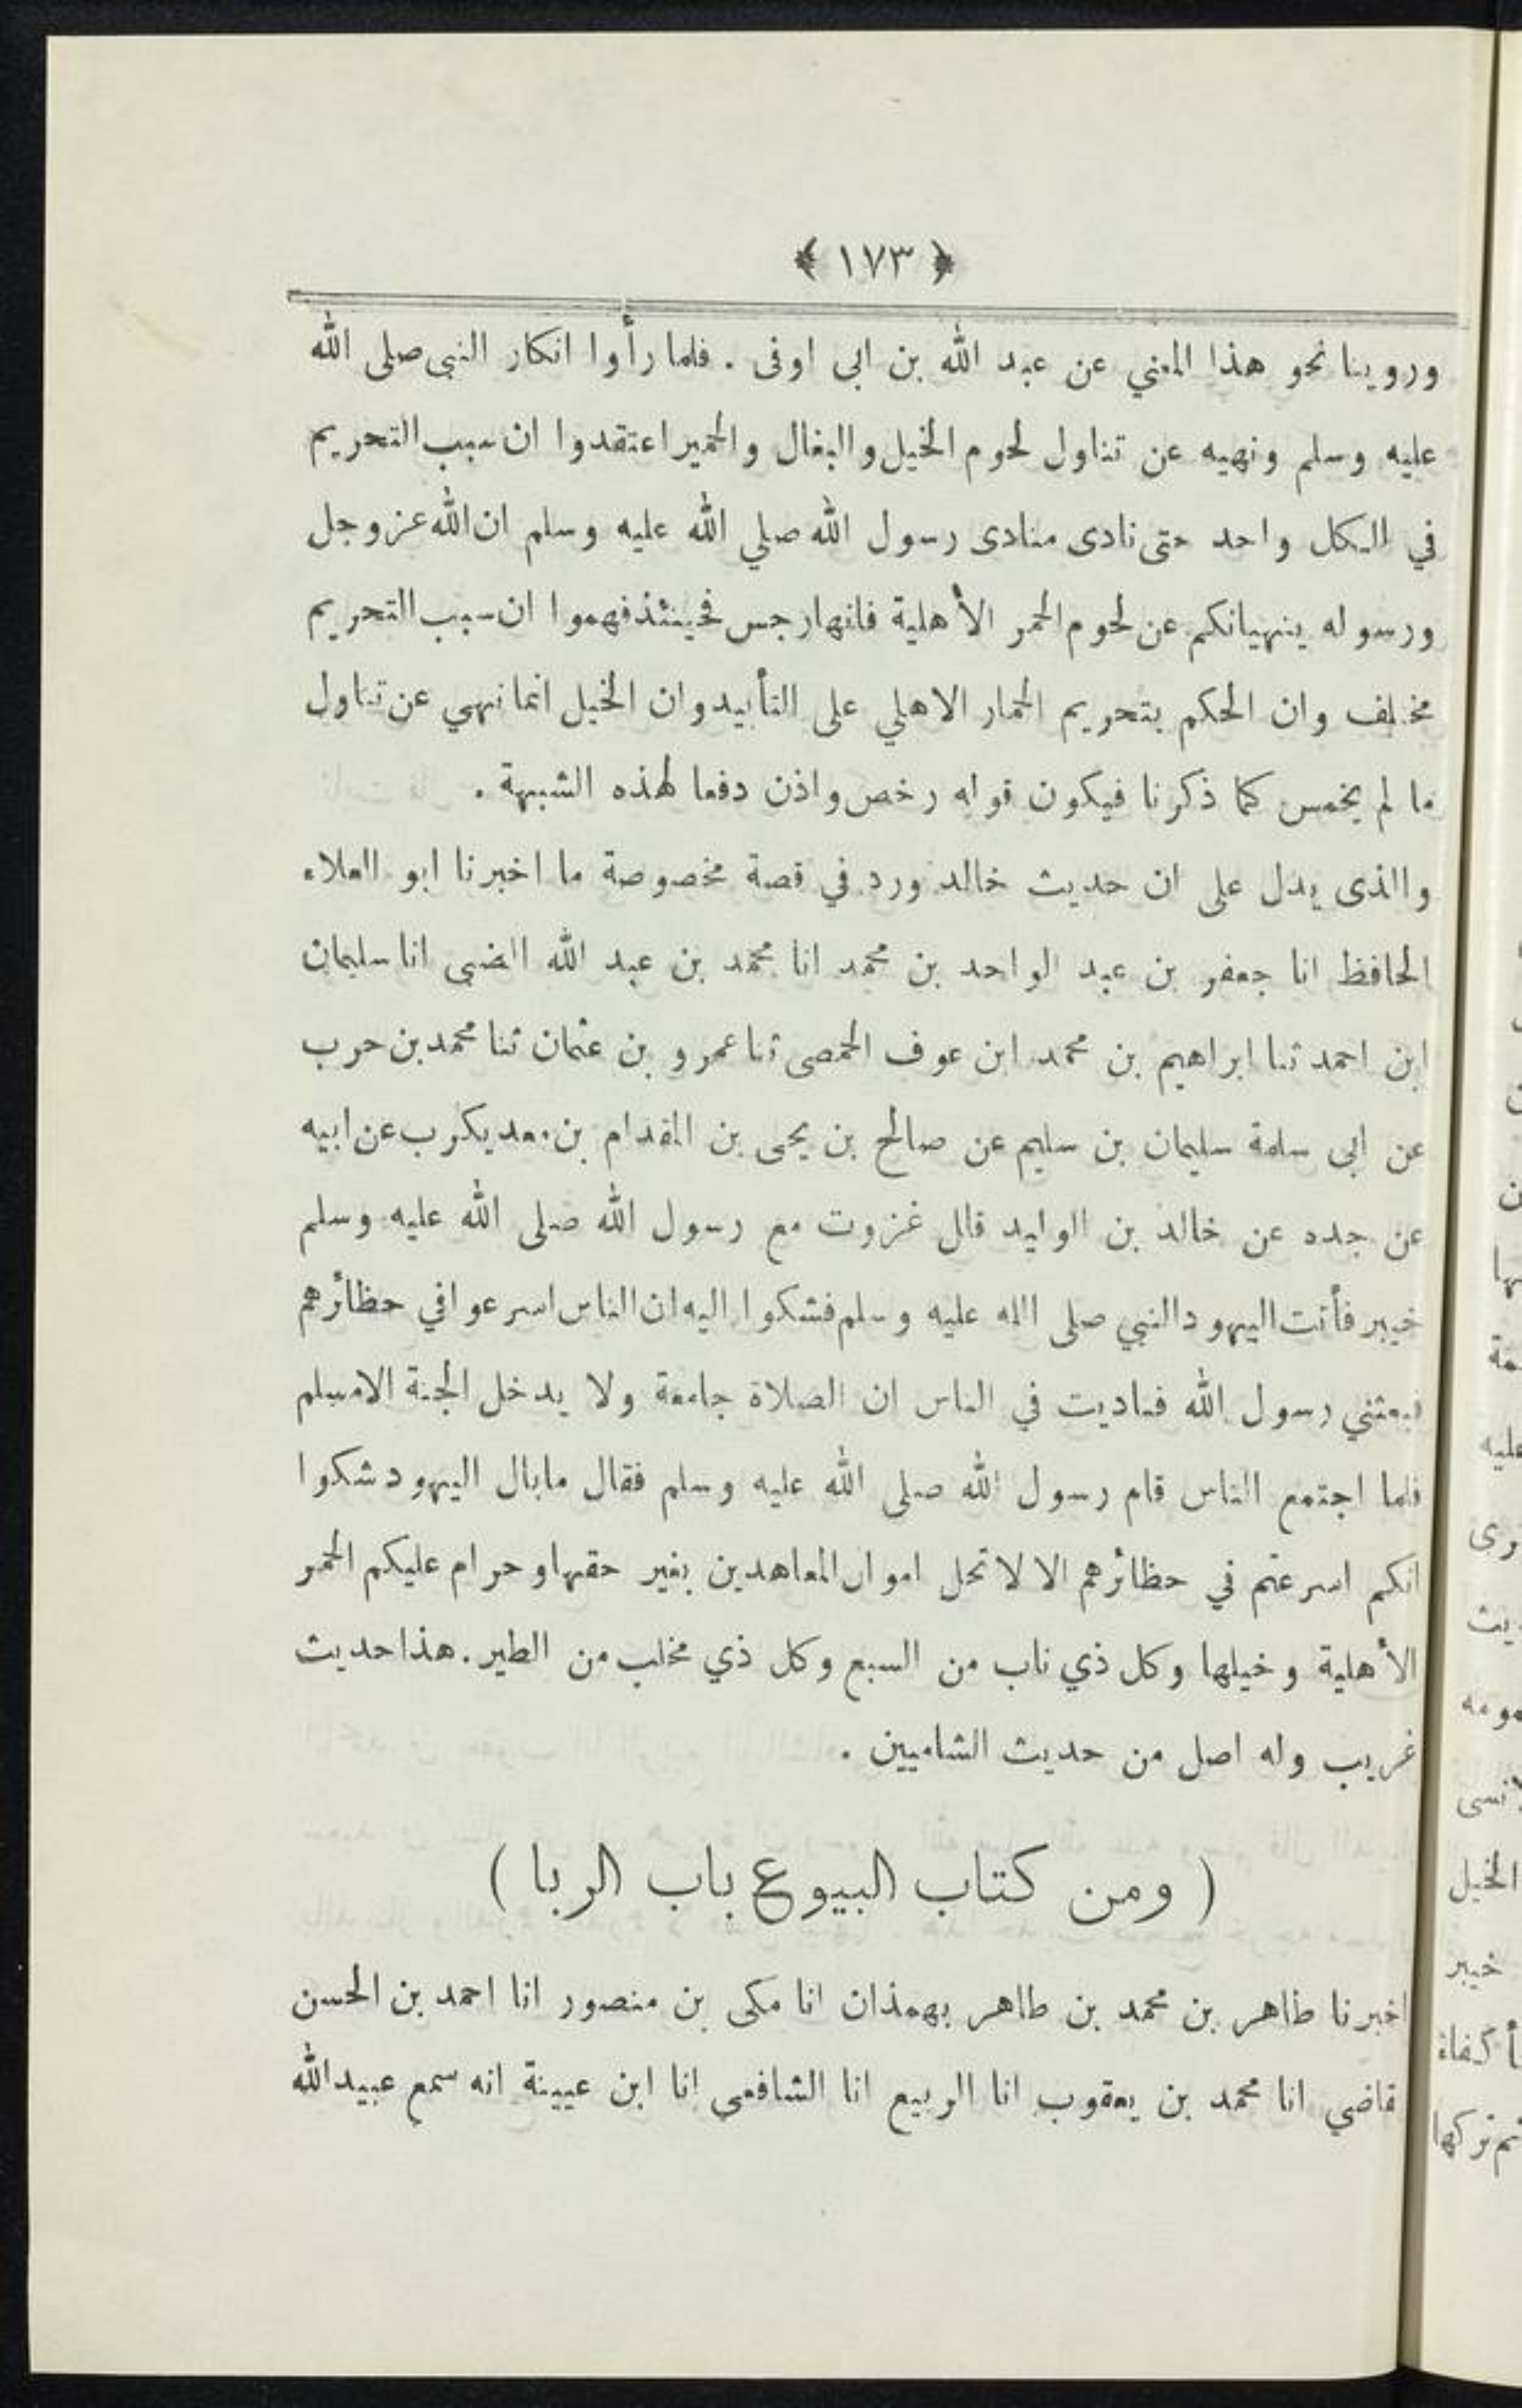 ﴿ ١٧٣ ﴾
وروينا نحو هذا المعني عن عبد الله بن ابى اوفى . فلما رأوا انكار النبى صلى الله
عليه وسلم ونهيه عن تناول لحوم الخيل والبغال والحمير اعتقدوا ان سبب التحريم
في الكل واحد حتى نادى منادى رسول الله صلي الله عليه وسلم ان الله عز وجل
ورسوله ينهيانكم عن لحوم الحمر الأهلية فانها رجس فحينئذ فهموا ان سبب التحريم
مختلف وان الحكم بتحريم الحمار الاهلي على التأبيد وان الخيل انما نهي عن تناول
ما لم يخمس كما ذكرنا فيكون قوله رخص واذن دفعا لهذه الشبهة .
والذى يدل على ان حديث خالد ورد في قصة مخصوصة ما اخبرنا ابو العلاء
الحافظ انا جعفر بن عبد الواحد بن محمد انا محمد بن عبد الله الضبى انا سليمان
ابن احمد ثنا ابراهيم بن محمد ابن عوف الحمصى ثنا عمرو بن عثمان ثنا محمد بن حرب
عن ابى سلمة سليمان بن سليم عن صالح بن يحى بن المقدام بن معد يكرب عن ابيه
عن جده عن خالد بن الوليد قال غزوت مع رسول الله صلى الله عليه وسلم
خيبر فأتت اليهود النبي صلى الله عليه وسلم فشكوا اليه ان الناس اسرعوا في حظائرهم
فبعثني رسول الله فناديت في الناس ان الصلاة جامعة ولا يدخل الجنة الا مسلم
فلما اجتمع الناس قام رسول الله صلى الله عليه وسلم فقال ما بال اليهود شكوا
انكم اسرعتم في حظائرهم الا لا تحل اموال المعاهدين بغير حقها وحرام عليكم الحمر
الأهلية وخيلها وكل ذي ناب من السبع وكل ذي مخلب من الطير . هذا حديث
غريب وله اصل من حديث الشاميين .
( ومن كتاب البيوع باب الربا )
اخبرنا طاهر بن محمد بن طاهر بهمذان انا مكى بن منصور انا احمد بن الحسن
قاضي انا محمد بن يعقوب انا الربيع انا الشافعى انا ابن عيينة انه سمع عبيد الله